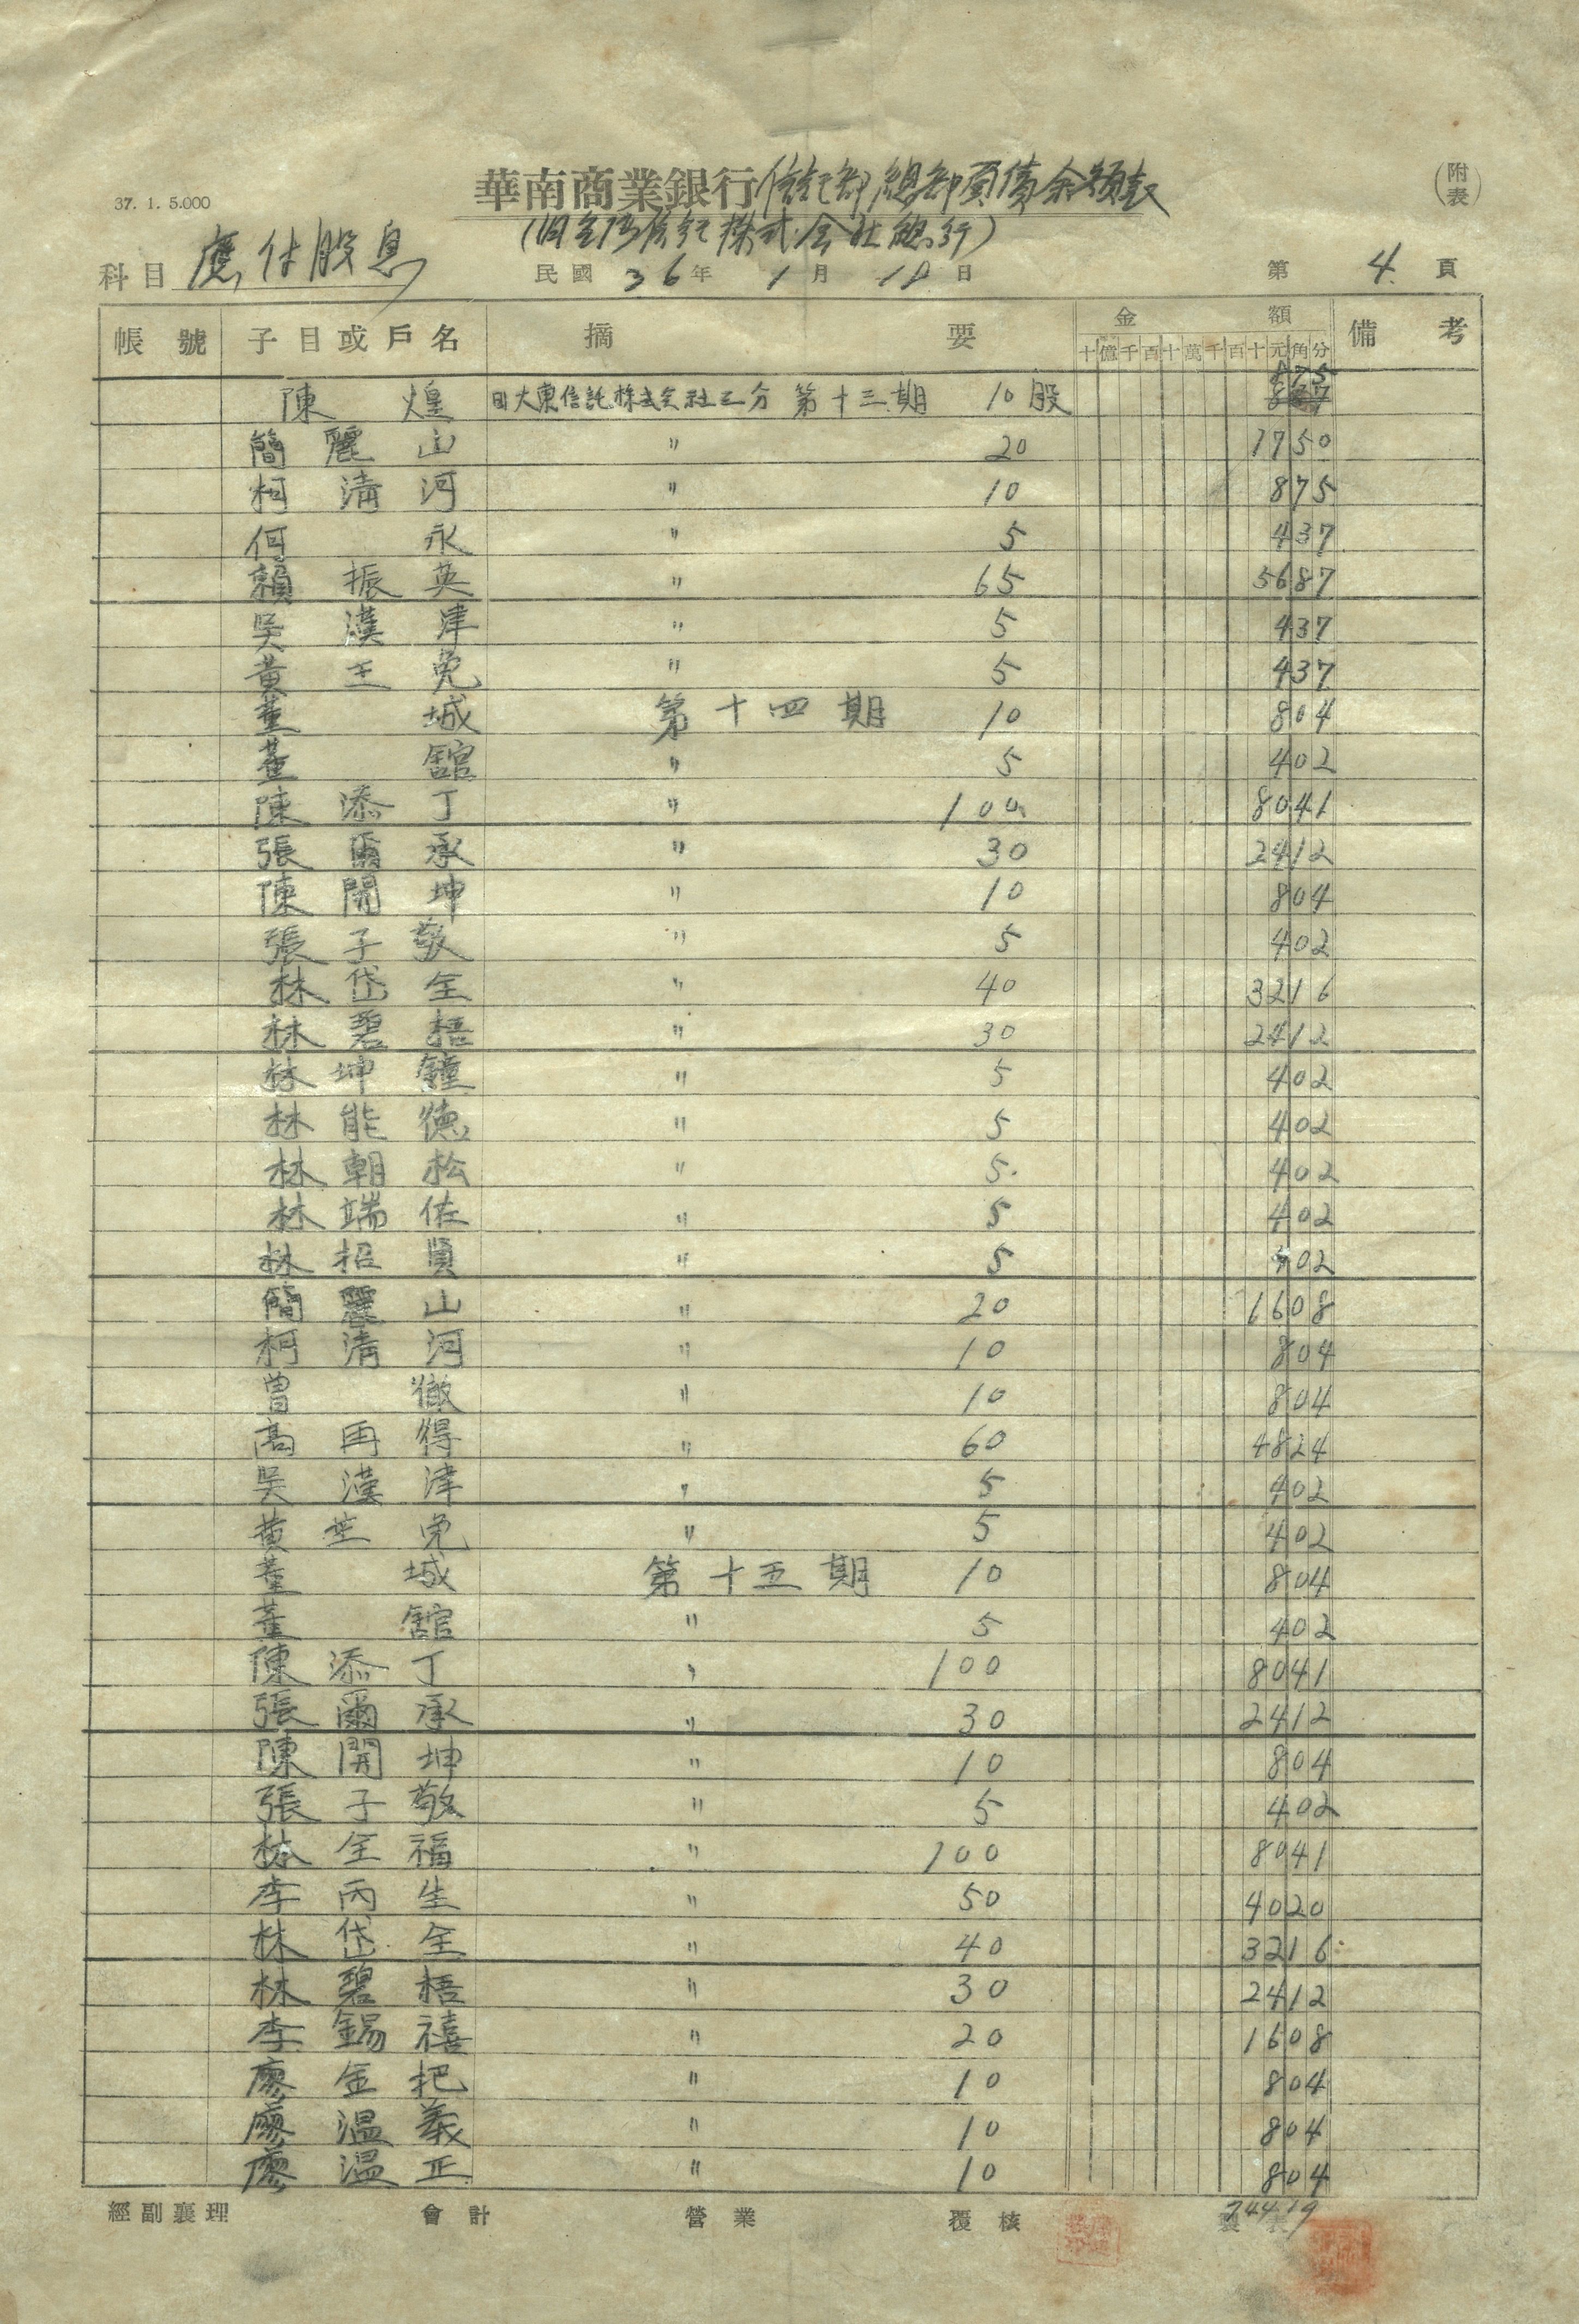 37. 1. 5.000
華南商業銀行 信託部總部負債余額表
(附表)
(旧台湾信託株式会社總行)
科目 應付股息 民國 36年 1月 18日 第 4 頁
帳號 子目或戶名 摘要 金額 備考
十億千百十萬千百十元角分
875
陳煌 旧大東信託株式会社之分 第十三期 10股
簡麗山 〃 20 1750
柯清河 〃 10 875
何永 〃 5 437
賴振英 〃 65 5687
吳漢津 〃 5 437
黃玉兔 〃 5 437
董城 第十四期 10 804
董舘 〃 5 402
陳添丁 〃 100 8041
張爾承 〃 30 2412
陳開坤 〃 10 804
張子敬 〃 5 402
林岱全 〃 40 3216
林碧梧 〃 30 2412
林坤鐘 〃 5 402
林能德 〃 5 402
林朝松 〃 5 402
林端佐 〃 5 402
林招貝 〃 5 402
簡麗山 〃 20 1608
柯清河 〃 10 804
曾徹 〃 10 804
高再得 〃 60 4824
吳漢津 〃 5 402
黃玉兔 〃 5 402
董城 第十五期 10 804
董舘 〃 5 402
陳添丁 〃 100 8041
張爾承 〃 30 2412
陳開坤 〃 10 804
張子敬 〃 5 402
林全福 〃 100 8041
李丙生 〃 50 4020
林岱全 〃 40 3216
林碧梧 〃 30 2412
李錫禧 〃 20 1608
廖金把 〃 10 804
廖温義 〃 10 804
廖温正 〃 10 804
經副襄理 會計 營業 覆核 製表
74419